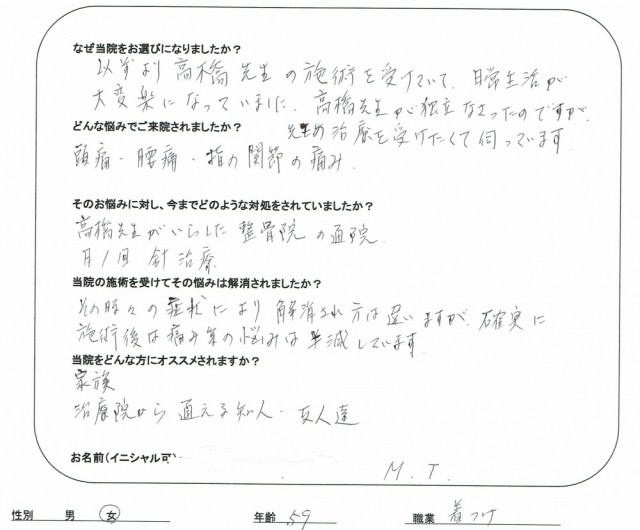 なぜ当院をお選びになりましたか？
以前より高橋先生の施術を受けていて、日常生活が
大変楽になっていました。高橋先生が独立なさったのですが、
先生の治療を受けたくて伺っています。
どんな悩みでご来院されましたか？
頭痛・腰痛・指の関節の痛み
そのお悩みに対し、今までどのような対処をされていましたか？
高橋先生がいらした整骨院の通院
月1回 針治療
当院の施術を受けてその悩みは解消されましたか？
その時々の症状により解消され方は違いますが、確実に
施術後は痛み等の悩みは半減しています。
当院をどんな方にオススメされますか？
家族
治療院から通える知人・友人達
お名前（イニシャル可）
M. T.
性別 男 女 年齢 59 職業 着つけ